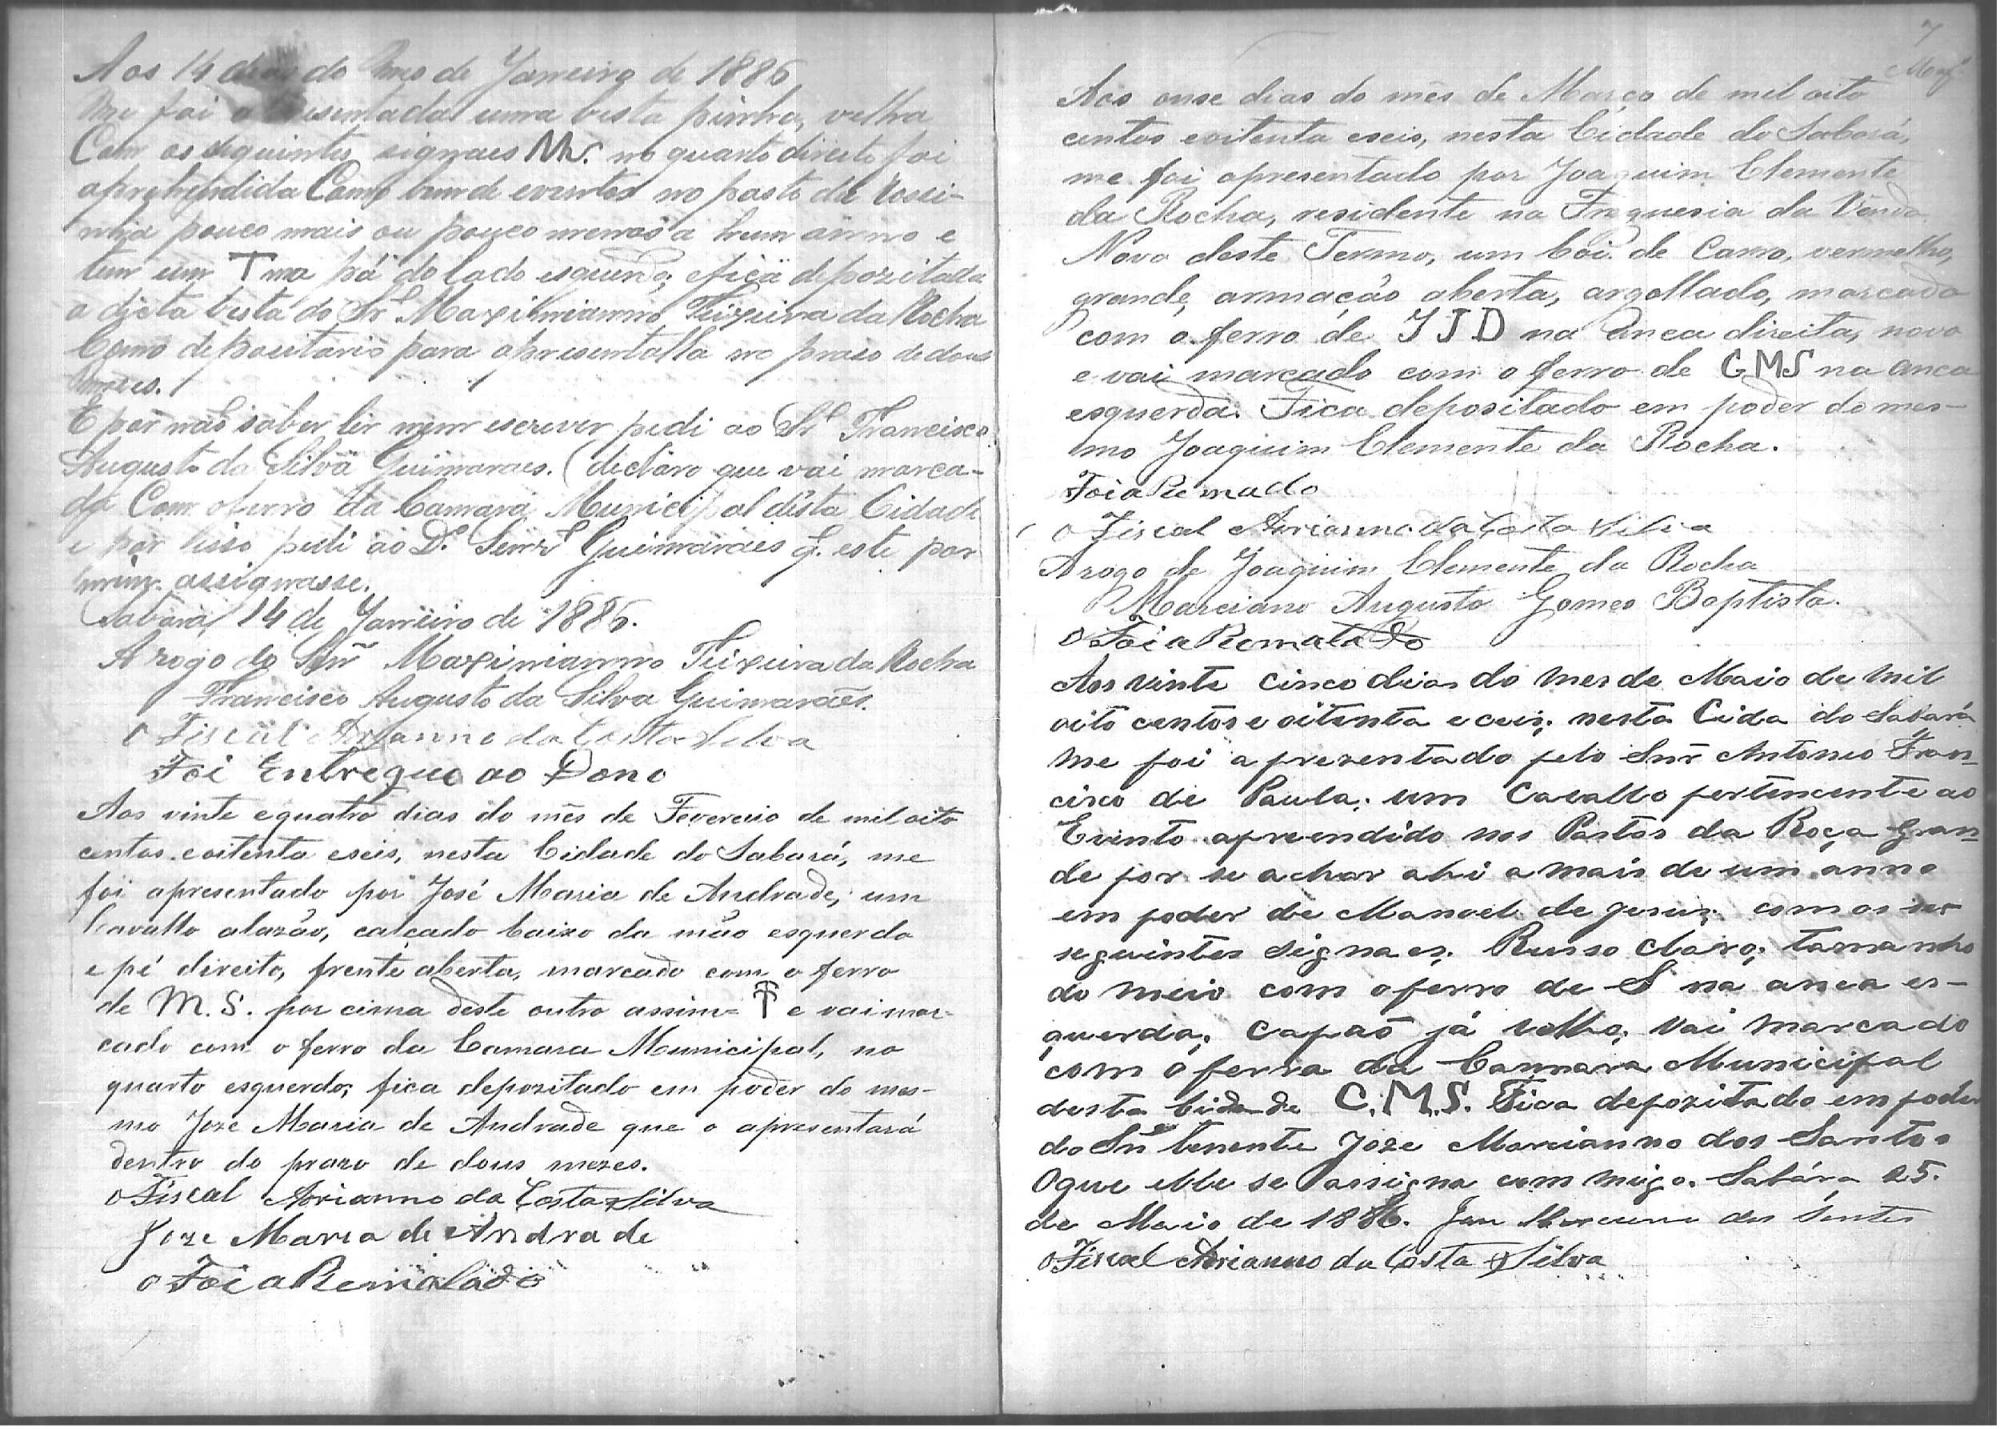 Aos 14 dias do mes de Janeiro de 1886
me foi apresentada uma besta pinha, velha
Com os seguintes signaes MS. no quarto direito foi
aprehendida Como bem de eventos no pasto da Rossi-
nha pouco mais ou pouco menos a hum anno e
tem um T na pá do lado esquerdo, e fica depozitada
a dita besta do Sr. Maximianno Teixeira da Rocha
Como depositario para apresentalla no praso de dous
mezes.
E por não saber ler nem escrever pedi ao Sr. Francisco
Augusto da Silva Guimaraes. (declaro que vai marca-
da Com o ferro da Camara Municipal desta Cidade
e por isso pedi ao D.º Senr. Guimaraes q. este por
mim assignasse.
Sabará, 14 de Janeiro de 1886.
A rogo do Snr. Maximianno Teixeira da Rocha
Francisco Augusto da Silva Guimarães.
O Fiscal Arianno da Costa e Silva
Foi Entregue ao Dono
Aos vinte e quatro dias do mês de Fevereiro de mil oito
centos e oitenta e seis, nesta Cidade do Sabará, me
foi apresentado por José Maria de Andrade, um
Cavallo alazão, calçado baixo da mão esquerda
e pé direito, frente aberta, marcado com o ferro
de M.S. por cima deste outro assim = T e vai mar-
cado com o ferro da Camara Municipal, no
quarto esquerdo; fica depozitado em poder do mes-
mo Joze Maria de Andrade que o apresentará
dentro do prazo de dous mezes.
O Fiscal Arianno da Costa e Silva
Joze Maria de Andrade
O Foi aRematado
7
Aos onse dias do mês de Março de mil oito
centos e oitenta e seis, nesta Cidade do Sabará,
me foi apresentado por Joaquim Clemente
da Rocha, residente na Freguesia da Venda
Nova deste Termo, um boi de Carro, vermelho,
grande, armação aberta, argollado, marcado
com o ferro de JJD na anca direita, novo
e vai marcado com o ferro de CMS na anca
esquerda. Fica depositado em poder do mes-
mo Joaquim Clemente da Rocha.
Foi aRemado
O Fiscal Arianno da Costa e Silva
A rogo de Joaquim Clemente da Rocha
Marciano Augusto Gomes Baptista.
O Foi aRematado
Aos vinte cinco dias do mes de Maio de mil
oito centos e oitenta e ceis; nesta Cida do Sabará
me foi aprezentado pelo Snr Antonio Fran-
cisco de Paula; um Cavallo pertencente ao
Evento apreendido nos Pastos da Roça Gran-
de por se achar ahi a mais de um anno
em poder de Manoel de Jesus; com os se
seguintes signaes. Russo Claro; tamanho
do meio com o ferro de S na anca es-
querda; capaõ já velho; vai marcado
com o ferro da Cammara Municipal
desta Cidade C.M.S. Fica depozitado em poder
do Snr tenente Joze Marcianno dos Santos
O que elle se assigna commigo. Sabára 25.
de Maio de 1886. Joze Marcianno dos Santos
O Fiscal Arianno da Costa e Silva